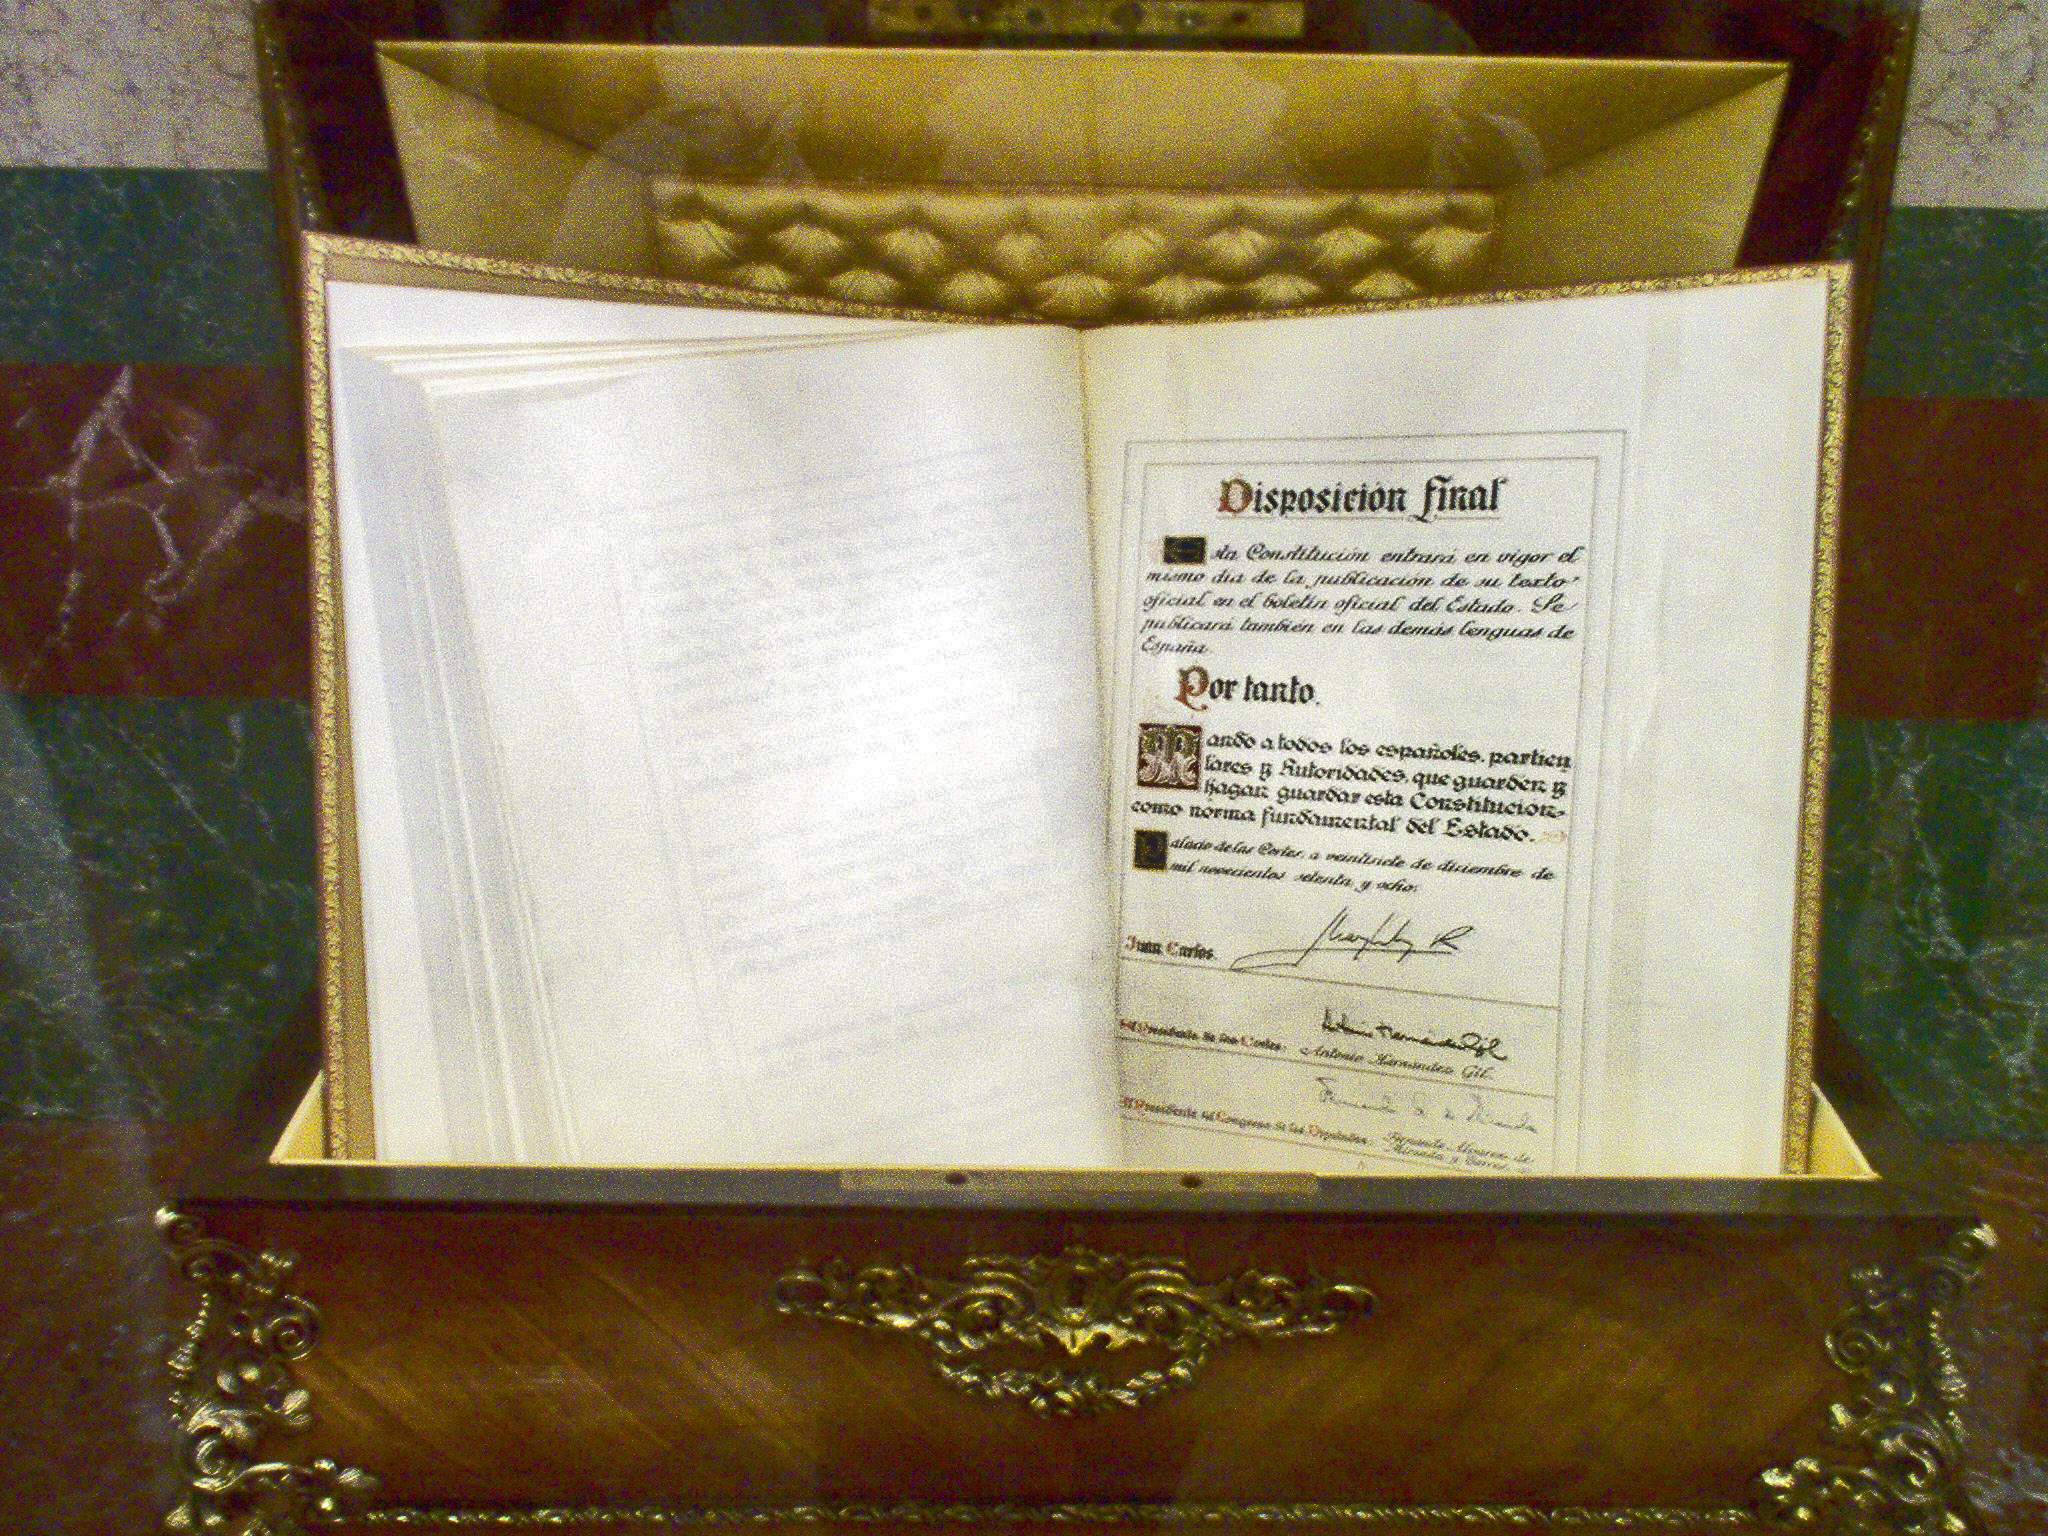 Disposición final
Esta Constitución entrará en vigor el
mismo día de la publicación de su texto
oficial en el boletín oficial del Estado. Se
publicará también en las demás lenguas de
España.
Por tanto.
Mando a todos los españoles, particu
lares y Autoridades, que guarden y
hagan guardar esta Constitución
como norma fundamental del Estado.
Palacio de las Cortes, a veintisiete de diciembre de
mil novecientos setenta y ocho.
Juan Carlos R
El Presidente de las Cortes. Antonio Hernández Gil.
El Presidente del Congreso de los Diputados. Fernando Álvarez de
Miranda y Torres